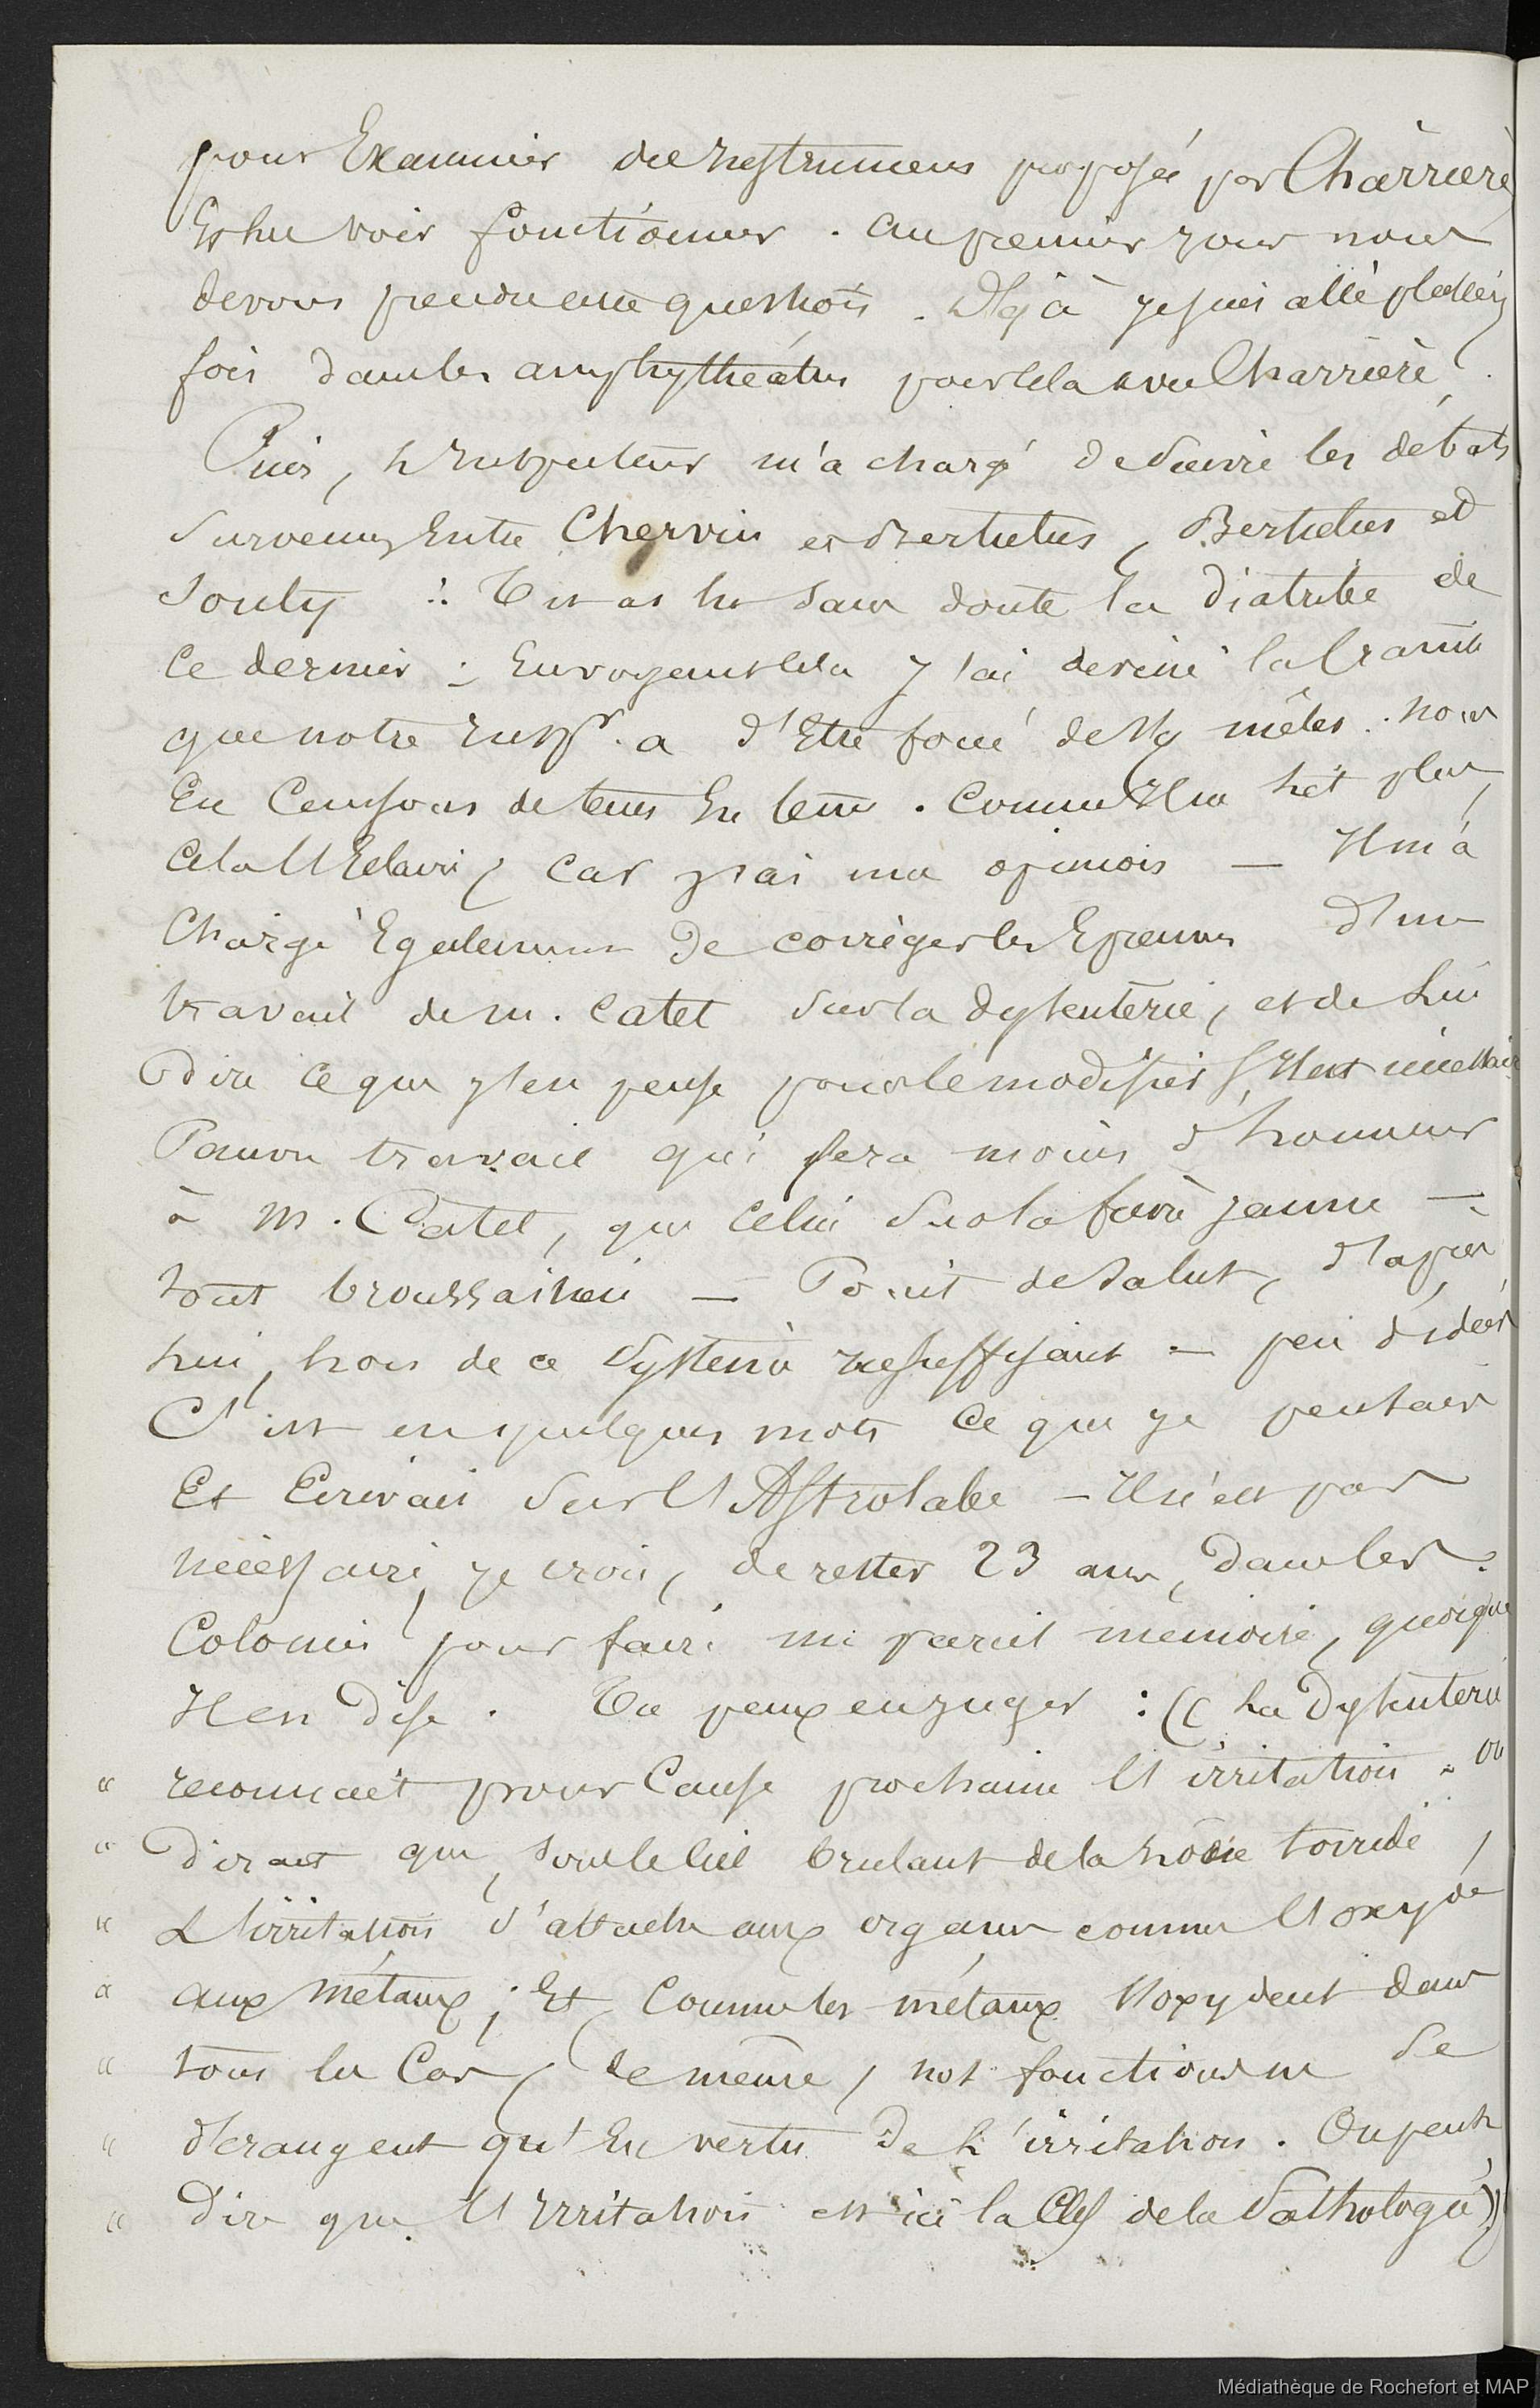 pour Examiner des Instrumens proposés par Charrière
Et les voir fonctionner . au premier jour nous
devons prendre cette question . Déjà je suis allé plusieurs
fois dans les amphythéatres pour cela avec Charrière .
Puis, l'Inspecteur m'a chargé de Suivre les débats
Survenus Entre Chervin et Bertulus, Bertulus et
Souty : Tu as lu sans doute la diatribe de
Ce dernier : En voyant cela j'ai deviné la Crainte
que notre Inspr. a d'Etre forcé de s'y mêler . nous
En Causons de tems En tems . Comme Il en sait plus,
Cela M'Eclaire, Car j'ai mon opinion — Il m'a
Chargé Egalement de corriger les Epreuves d'un
travail de m. Catel Sur la dyssenterie, et de Lui
dire ce que j'en pense pour le modifier S'Il est nécessaire
Pauvre travail qui fera moins d'honneur
à M. Catel, que Celui Sur la fièvre jaune —
tout broussaisien — Point de Salut, d'après
lui, hors de ce Système Insuffisant — peu d'Idées
C'est en quelques mots Ce que je pensais
Et Ecrivais Sur l'Astrolabe — Il n'est pas
nécessaire, je crois, de rester 23 ans, dans les
Colonies pour faire un pareil mémoire, quoique
Il en dise . Tu peux en juger : « La Dyssenterie
« reconnait pour Cause prochaine l'irritation . on
« dirait que, sous le Ciel brulant de la zône torride,
« L'irritation S'attache aux organes comme l'oxyde
« aux métaux ; Et Comme les métaux s'oxydent dans
« tous les Cas, de même, nos fonctions ne Se
« dérangent qu'En vertu De L'irritation . On peut
« Dire que l'Irritation est ici la Clef de la Pathologie »
Médiathèque de Rochefort et MAP